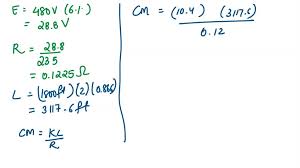 E = 480V (6%)
= 28.8 V
R = 28.8 / 235
= 0.1225 Ω
L = (1800ft)(2)(0.866)
= 3117.6 ft
CM = KL / R
CM = (10.4) (3117.6) / 0.12